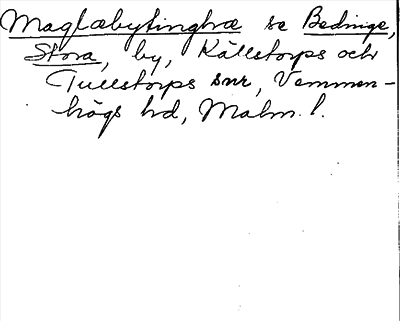 Maglæbytinghæ se Bedinge,
Stora, by, Källstorps och
Tullstorps snr, Vemmen-
högs hd, Malm. l.